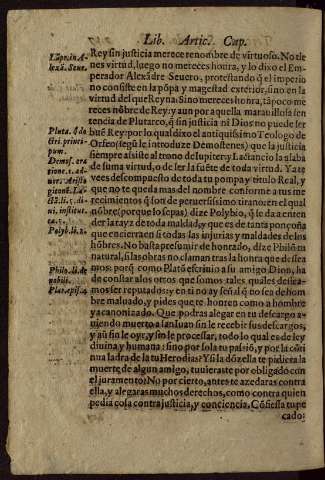 Lib. Artic. Cap.
Rey sin justicia merece renombre de virtuoso. No tie
nes virtud, luego no mereces honra, y lo dixo el Em-
perador Alexãdre Seuero, protestando q̃ el imperio
no consiste en la põpa y magestad exterior, sino en la
virtud del que Reyna: Sino mereces hõra, tãpoco me
reces nõbre de Rey. y aun por aquella marauillosa sen
tencia de Plutarco, q̃ sin justicia ni Dios no puede ser
buẽ Rey: Por lo qual dixo el antiquissimo Teologo de
Orfeo (segũ le introduze Demostenes) que la justicia
siempre assiste al trono de Iupiter: y Lactancio la alaba
de suma virtud, o de ser la fuẽte de toda virtud. Ya te
ves descompuesto de toda tu pompa y titulo Real, y
que no te queda mas del nombre conforme a tus me
recimientos q̃ son de peruersissimo tirano: en el qual
nõbre (porque lo sepas) dize Polybio, q̃ se da a enten
der la rayz de toda maldad, y que es de tanta ponçoña
que encierra en si todas las injurias y maldades de los
hõbres. No basta presumir de honrado, dize Philõ in
natural, si las obras no claman tras la honra que desea
mos: porq̃ como Platõ escriuio a su amigo Dion, ha
de constar a los otros que somos tales quales dessea-
mos ser reputados: y en ti no ay señal q̃ no sea de hom
bre maluado, y pides que te honren como a hombre
ya canonizado. Que podras alegar en tu descargo a-
uiendo muerto a san Iuan sin le recebir sus descargos,
y aũ sin le oyr, y sin le processar, todo lo qual es de ley
diuina y humana: sino por sola tu passiõ, y por la cõti
nua ladra de la tu Herodias? Y si la dõzella te pidiera la
muerte de algun amigo, tuuieraste por obligado con
el juramento? No por cierto, antes te azedaras contra
ella, y alegaras muchos derechos, como contra quien
pedia cosa contra justicia, y conciencia. Cõfiessa tu pe
cado:
Lãprin. in A.
lexã. Seue.
Pluta. q̃ do
ctri. princi-
pum.
Polyb. li. 2.
Plat. epist. 4